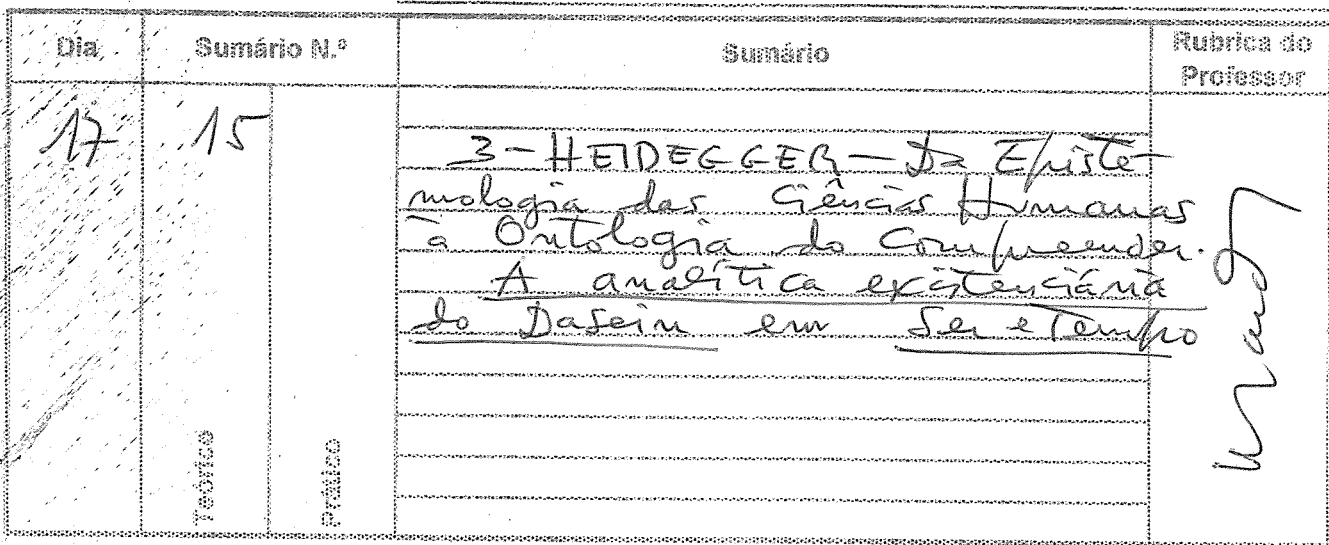 Dia
Sumário N.º
Sumário
Rubrica do
Professor
17
15
3 - HEIDEGGER - Da Episte-
mologia das Ciências Humanas
à Ontologia do Compreender.
A analítica existenciária
do Dasein em Ser e Tempo
Teórico
Prático